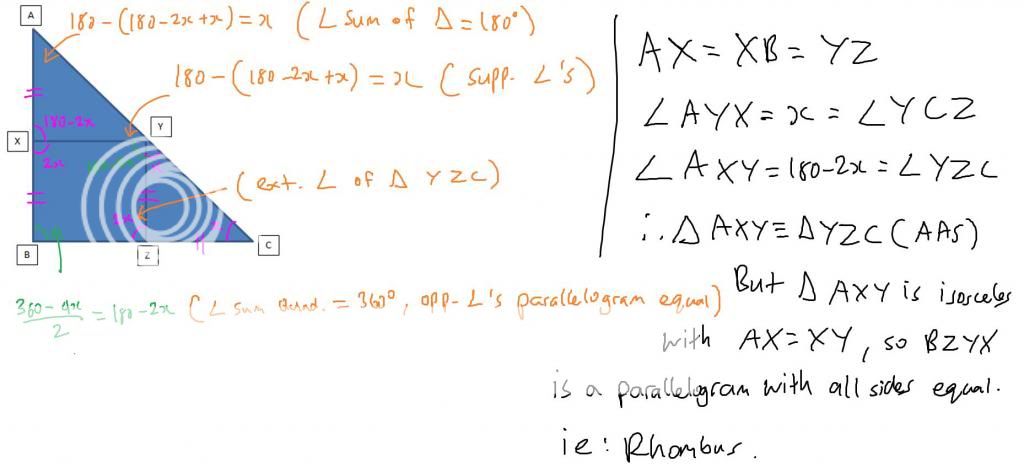 A
180-(180-2x+x)=x (∠ sum of Δ=180°)
180-(180-2x+x)=x (supp. ∠'s)
X
180-2x
Y
2x
(ext. ∠ of Δ YZC)
2x
B
Z
C
360-4x
2
=180-2x (∠ sum Quad. = 360°, opp-∠'s parallelogram equal)
AX=XB=YZ
∠AYX=x=∠YCZ
∠AXY=180-2x=∠YZC
∴ΔAXY≡ΔYZC(AAS)
But ΔAXY is isosceles
with AX=XY, so BZYX
is a parallelogram with all sides equal.
ie: Rhombus.